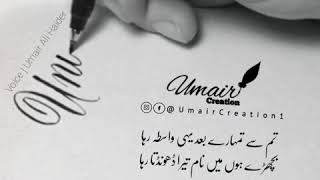 Voice | Umair Ali Haider
Umi
Umair
Creation
@UmairCreation1
تم سے تمہارے بعد یہی واسطہ رہا
بچھڑے ہوں میں نام تیرا ڈھونڈتا رہا